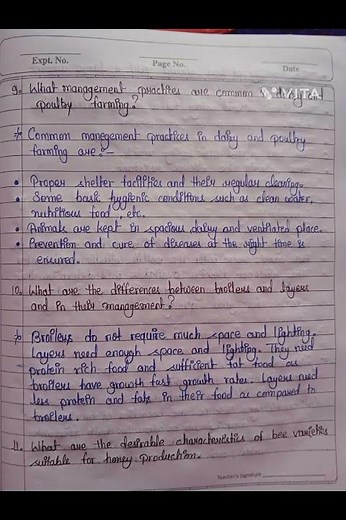 Expt. No.
Page No.
Date
9. What management practices are common in
poultry farming?
→ Common manegement practices in daisy and poultry
farming are:-
• Proper shelter facilities and their regular cleaning.
• Some basic hygienic conditions such as clean water,
nutritious food, etc.
• Animals are kept in spacious dairy and ventilated place.
• Prevention and cure of diseases at the right time is
ensured.
10. What are the differences between broilers and layers
and in their management?
→ Broilers do not require much space and lighting.
Layers need enough space and lighting. They need
protein rich food and sufficient fat food as
broilers have growth fast growth rates. Layers need
less protein and fats in their food as compared to
broilers.
11. What are the desirable characteristics of bee varieties
suitable for honey production.
Teacher's Signature